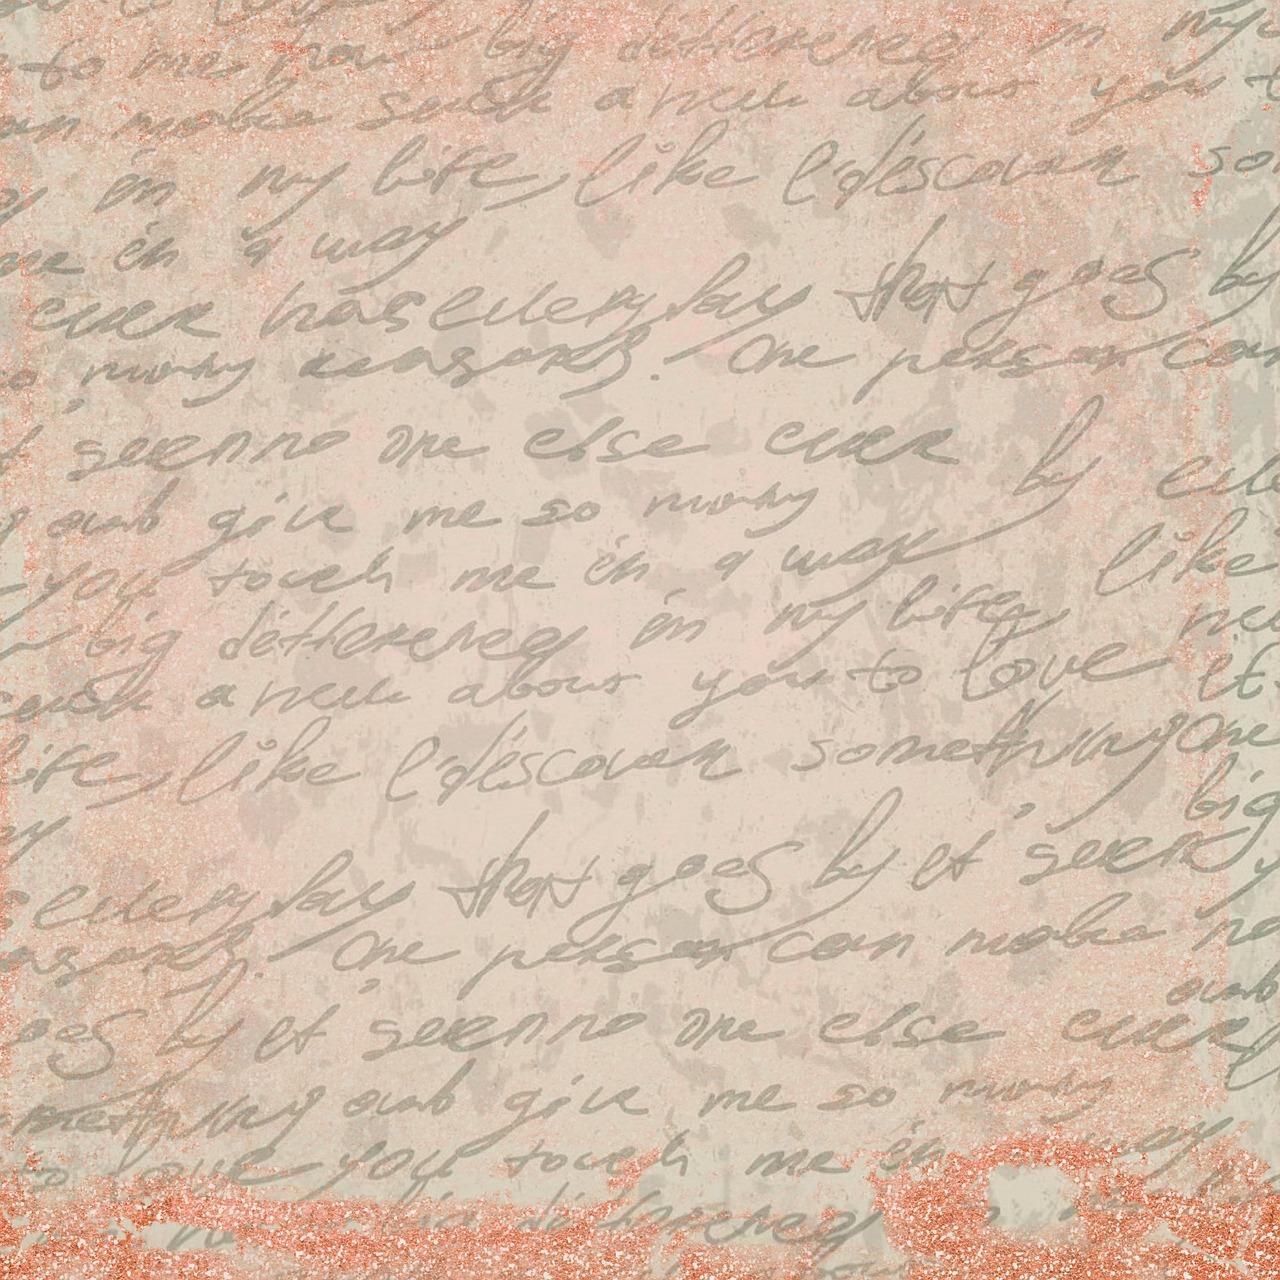 to me how big difference in my
can make such a neck about you t
in my life, like I discover so
me in a way
ever has every day that goes by
so many reasons. One person can
t seen no one else ever by eve
and give me so many
you touch me in a way like
big difference in my life,
such a neck about you to love it
life, like I discover something One
big
s every day that goes by it seen
asons. One person can make no
and
goes by it seen no one else ever
mething and give me so many
to love you touch me in way
big difference